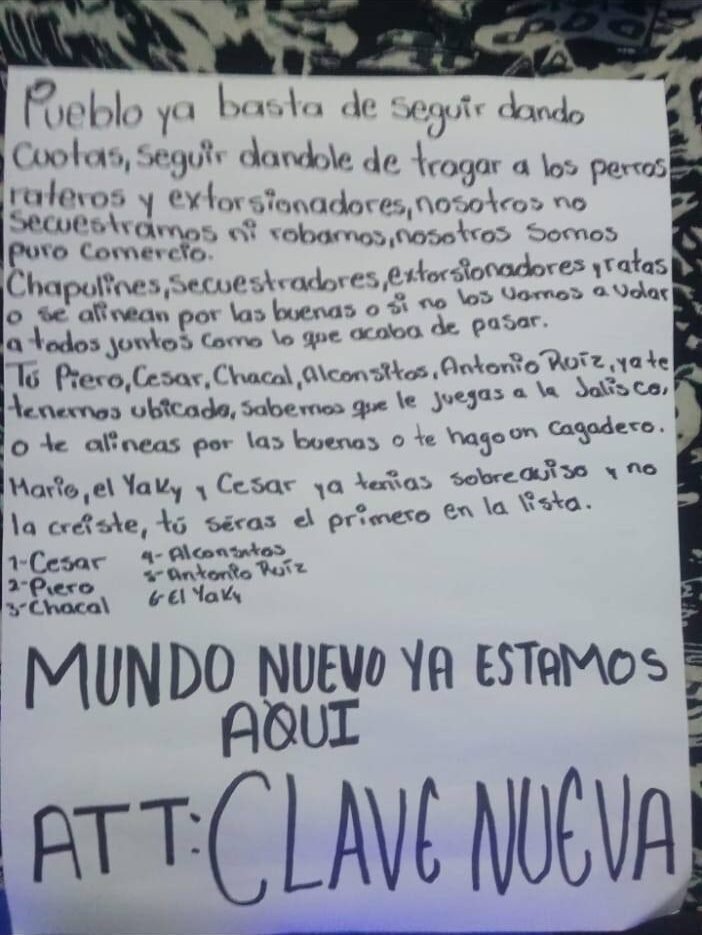 Pueblo ya basta de seguir dando
cuotas, seguir dandole de tragar a los perros
rateros y extorsionadores, nosotros no
secuestramos ni robamos, nosotros somos
puro comercio.
Chapulines, secuestradores, extorsionadores y ratas
o se alinean por las buenas o si no los vamos a volar
a todos juntos como lo que acaba de pasar.
Tú Piero, Cesar, Chacal, Alconsitos, Antonio Ruiz, ya te
tenemos ubicado, sabemos que le juegas a la Jalisco,
o te alineas por las buenas o te hago un cagadero.
Mario, el Yaky y Cesar ya tenias sobreaviso y no
la creiste, tú séras el primero en la lista.
1-Cesar 4-Alconsitos
2-Piero 5-Antonio Ruiz
3-Chacal 6-El Yaky
MUNDO NUEVO YA ESTAMOS
AQUI
ATT: CLAVE NUEVA